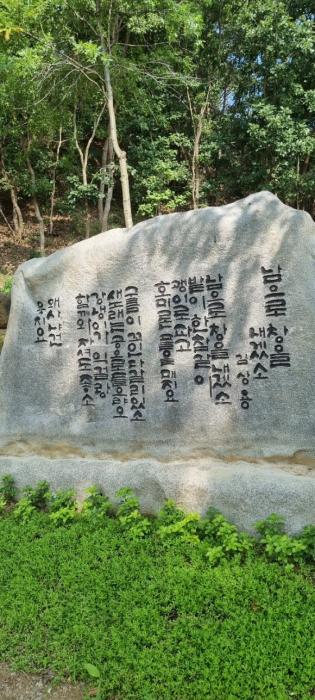 남으로 창을
내겠소
김상용
남으로 창을 내겠소
밭이 한참갈이
괭이로 파고
호미론 풀을 매지요
구름이 꼬인다 갈리 있소
새 노래는 공으로 들으랴오
강냉이가 익걸랑
함께 와 자셔도 좋소
왜 사냐건
웃지요